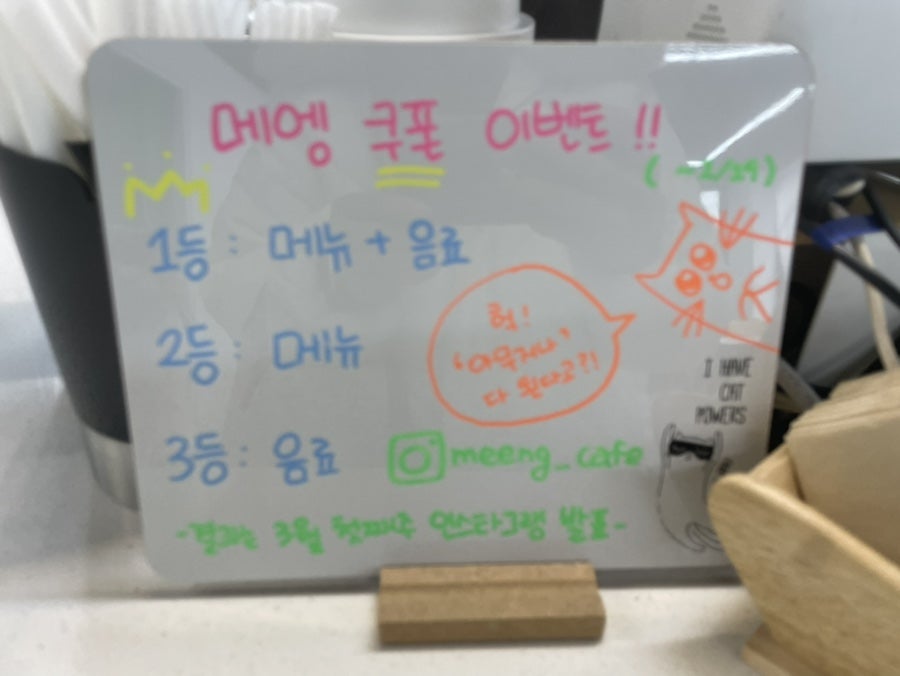 메엥 쿠폰 이벤트 !!
( ~2/29)
1등 : 메뉴 + 음료
2등 : 메뉴
헐!
'아무거나'
다 된다고?!
I HAVE
CAT
POWERS
3등 : 음료
meeng_cafe
-결과는 3월 첫째주 인스타그램 발표-